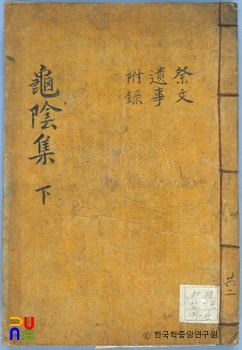 祭文
遺事
附錄
龜陰集 下
© 한국학중앙연구원